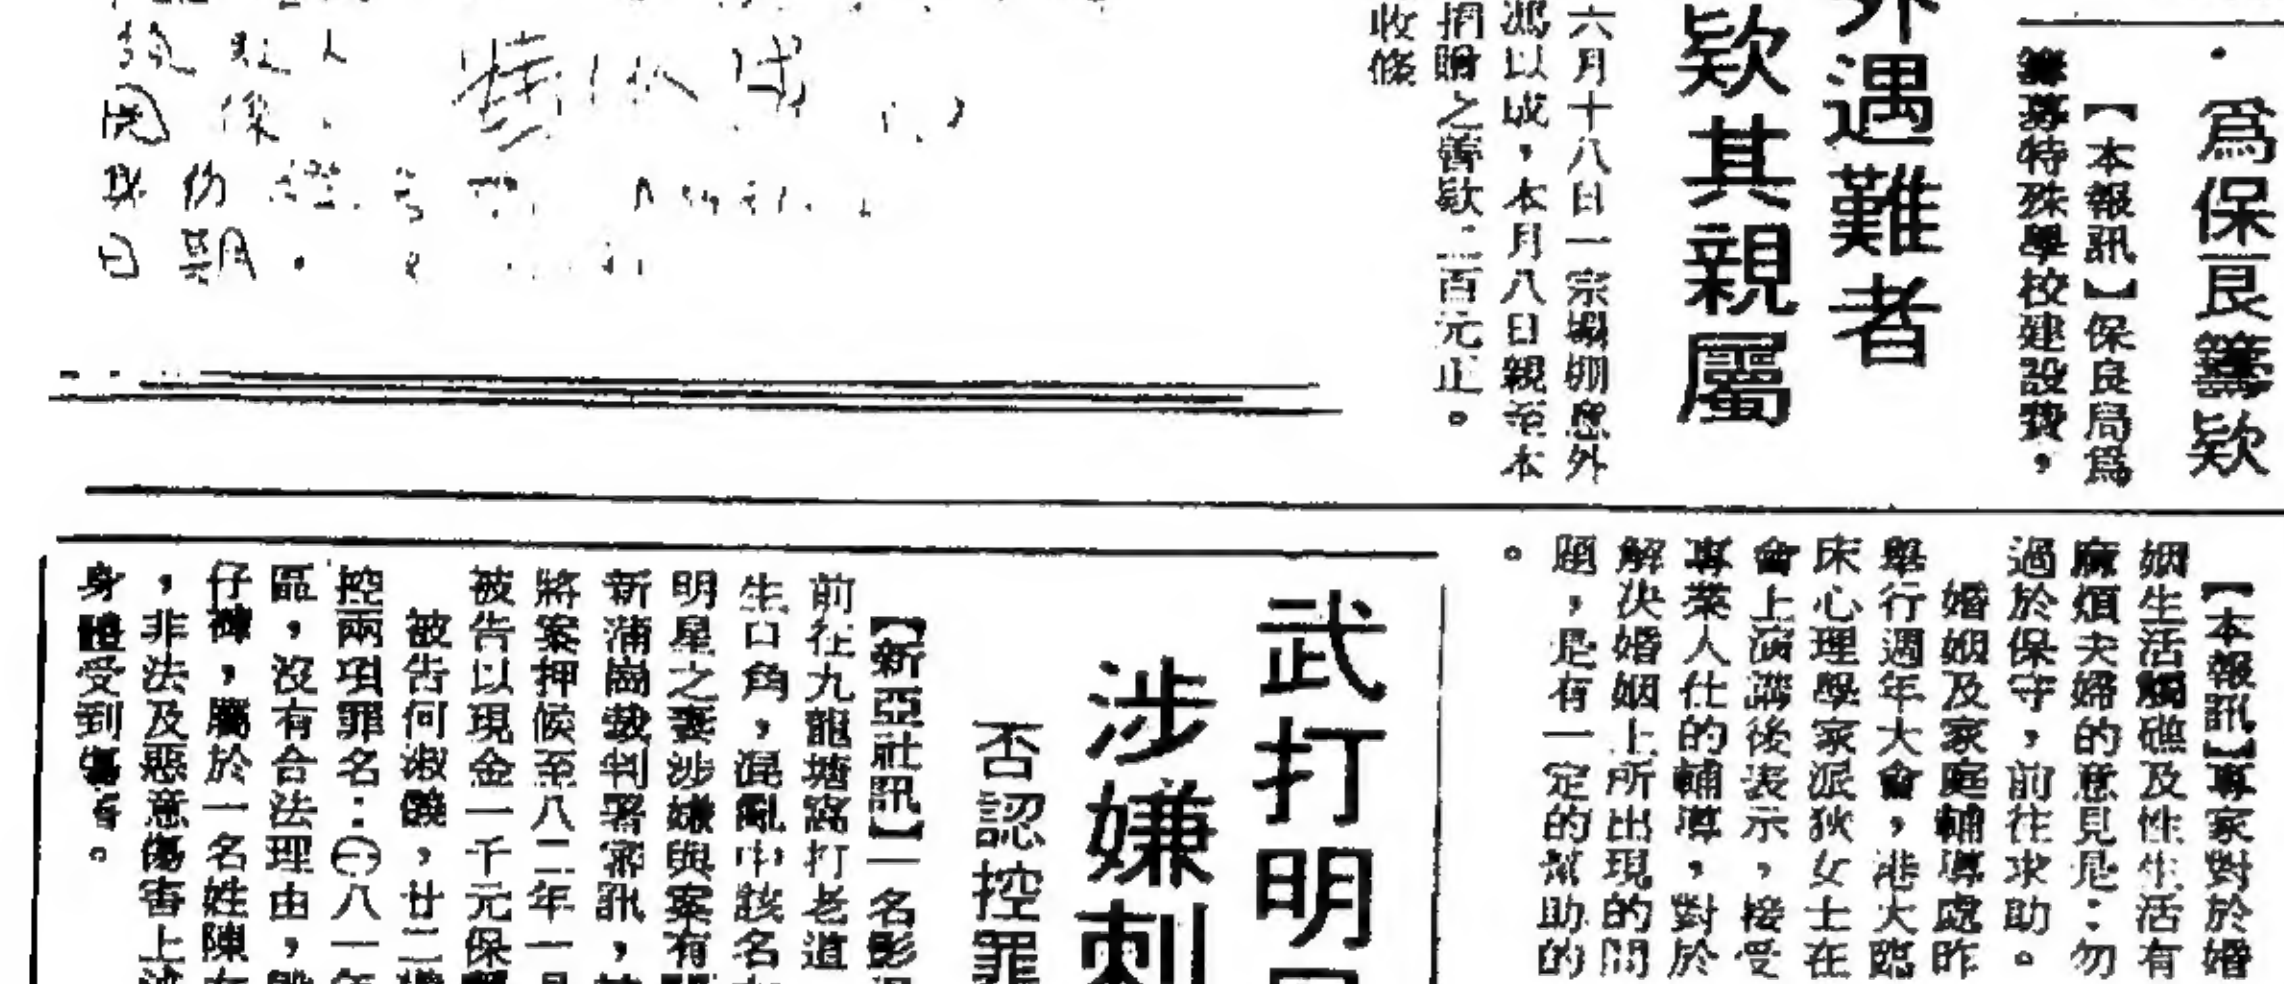 爲保良籌欵
【本報訊】保良局爲
籌募特殊學校建設費，
外遇難者
欵其親屬
六月十八日一宗塌棚意外
鴻以成，本月八日親至本
捐贈之善欵二百元正。
收條
日期
【本報訊】專家對於婚
姻生活觸礁及性生活有
麻煩夫婦的意見是：勿
過於保守，前往求助。
婚姻及家庭輔導處昨
舉行週年大會，港大臨
床心理學家派狄女士在
會上演講後表示，接受
專業人仕的輔導，對於
解決婚姻上所出現的問
題，是有一定的幫助的
。
武打明
涉嫌刺
否認控罪
【新亞社訊】一名影
前在九龍塘窩打老道
生口角，混亂中該名
明星之妻涉嫌與案有
新蒲崗裁判署審訊，
將案押候至八二年一月
被告以現金一千元保
被告何淑，廿二
控兩項罪名：㊀八一年
區，沒有合法理由，
仔褲，屬於一名姓陳
，非法及惡意傷害上
身體受到傷害。